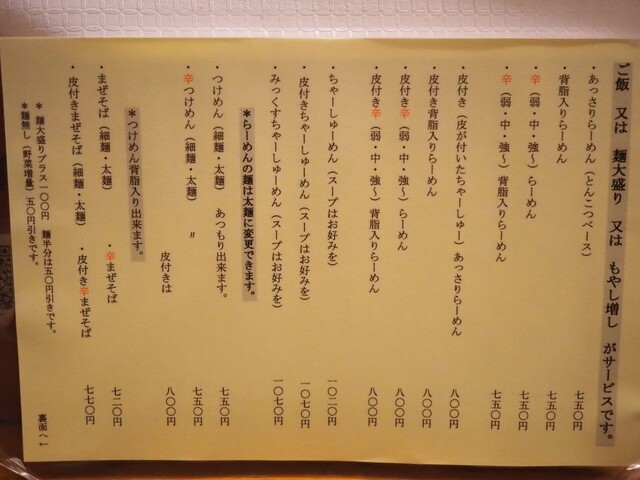 ご飯 又は 麺大盛り 又は もやし増し がサービスです。
・あっさりらーめん（とんこつベース） 七五〇円
・背脂入りらーめん 七五〇円
・辛（弱・中・強〜）らーめん 七五〇円
・辛（弱・中・強〜）背脂入りらーめん 七五〇円
・皮付き（皮が付いたちゃーしゅー）あっさりらーめん 八〇〇円
・皮付き背脂入りらーめん 八〇〇円
・皮付き辛（弱・中・強〜）らーめん 八〇〇円
・皮付き辛（弱・中・強〜）背脂入りらーめん 八〇〇円
・ちゃーしゅーめん（スープはお好みを） 一〇二〇円
・皮付きちゃーしゅーめん（スープはお好みを） 一〇七〇円
・みっくすちゃーしゅーめん（スープはお好みを） 一〇七〇円
＊らーめんの麺は太麺に変更できます。
・つけめん（細麺・太麺） あつもり出来ます。 七五〇円
・辛つけめん（細麺・太麺） 〃 七五〇円
皮付きは 八〇〇円
＊つけめん背脂入り出来ます。
・まぜそば（細麺・太麺） ・辛まぜそば 七二〇円
・皮付きまぜそば（細麺・太麺） ・皮付き辛まぜそば 七七〇円
＊ 麺大盛りプラス一〇〇円 麺半分は五〇円引きです。
＊麺無し（野菜増量）五〇円引きです。
裏面へ←